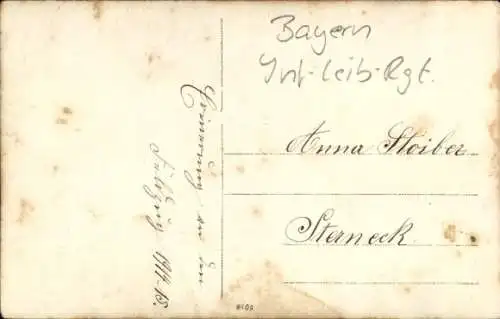 Bayern
Inf-Leib-Rgt.
Erinerung an den
Feldzug 1914-15.
Anna Stoiber
Sterneck